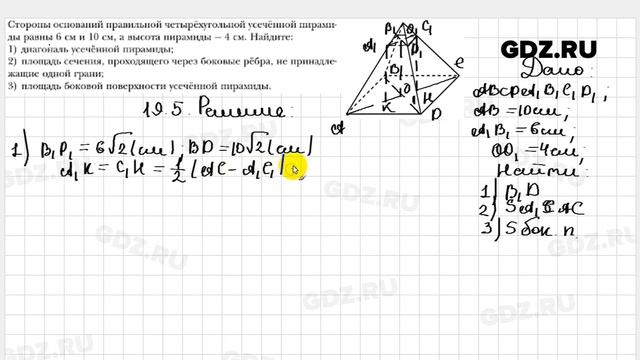 Стороны оснований правильной четырёхугольной усечённой пирами-
ды равны 6 см и 10 см, а высота пирамиды – 4 см. Найдите:
1) диагональ усечённой пирамиды;
2) площадь сечения, проходящего через боковые рёбра, не принадле-
жащие одной грани;
3) площадь боковой поверхности усечённой пирамиды.
19.5. Решение:
1) B₁D₁ = 6√2 (см); BD = 10√2 (см)
A₁K = C₁H = 1/2 (AC - A₁C₁)
B₁ C₁
A₁
D₁
B
C
O
K H
A D
GDZ.RU
Дано:
ABCDA₁B₁C₁D₁;
AB = 10см;
A₁B₁ = 6см;
OO₁ = 4см;
Найти:
1) B₁D
2) SAA₁
3) S бок. п.
GDZ.RU
GDZ.RU
GDZ.RU
GDZ.RU